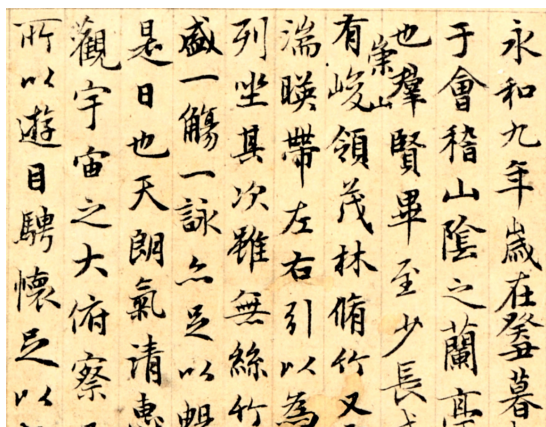 永和九年歲在癸丑暮
于會稽山陰之蘭亭
也羣賢畢至少長
有崇山峻領茂林脩竹又
湍暎帶左右引以為
列坐其次雖無絲竹
盛一觴一詠亦足以暢
是日也天朗氣清惠
觀宇宙之大俯察
所以遊目騁懷足以